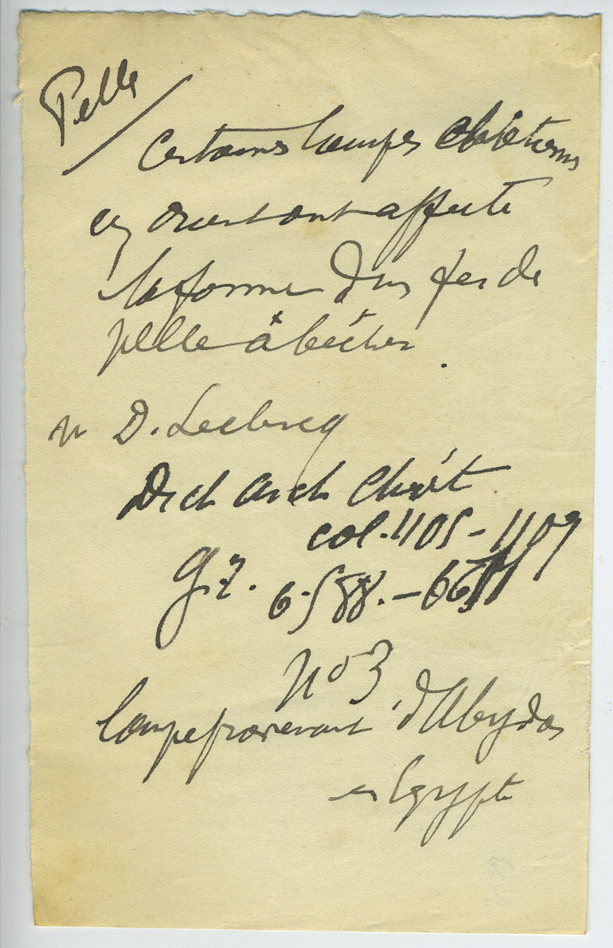 Pelle
Certaines lampes chrétiennes
en orient ont affecté
la forme d'un fer de
pelle à bêcher.
D. Leclercq
Dict Arch Chrét.
col. 1105-1109
6.588.-
no 3
lampe provenant d'Abydos
en Egypte